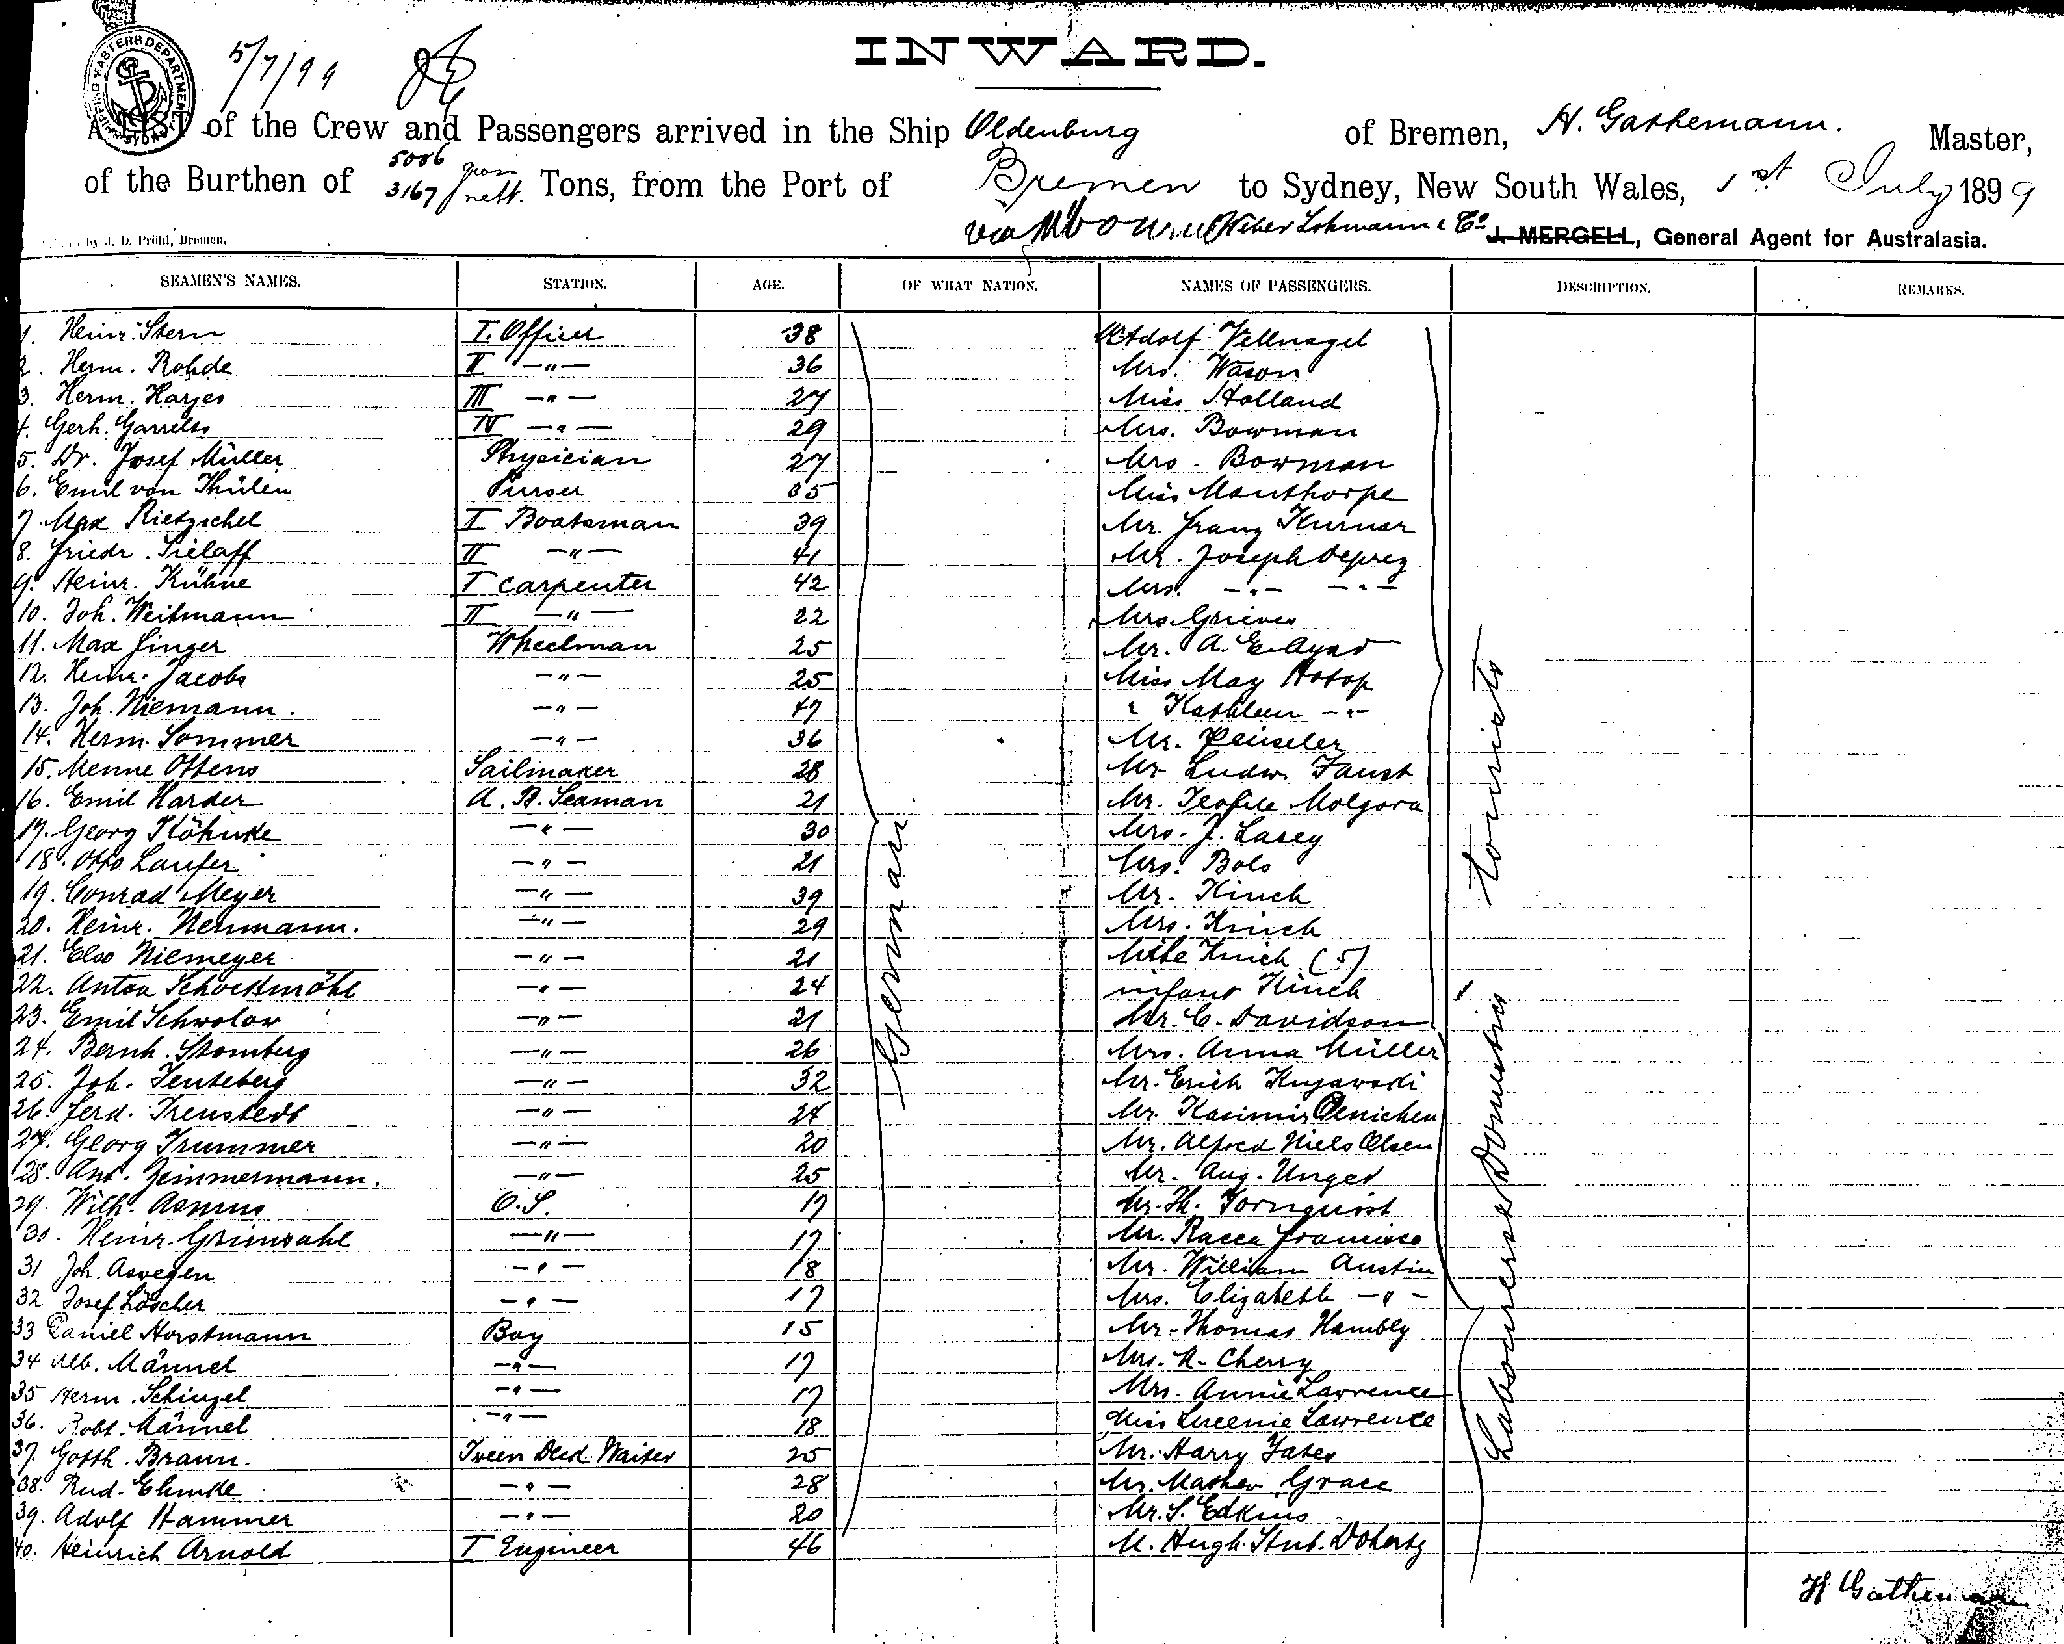 5/7/99
INWARD.
A LIST of the Crew and Passengers arrived in the Ship Oldenburg of Bremen, H. Gathemann. Master,
of the Burthen of 5006 gross 3167 nett. Tons, from the Port of Bremen to Sydney, New South Wales, 1st July 1899
via Weber Lohmann & Co J. MERGELL, General Agent for Australasia.
by J. D. Pröhl, Bremen.
SEAMEN'S NAMES. STATION. AGE. OF WHAT NATION. NAMES OF PASSENGERS. DESCRIPTION. REMARKS.
1. Heinr. Stern I. Officer 38 Adolf Vellnagel
2. Herm. Rohde II -"- 36 Mrs. Wason
3. Herm. Harjes III -"- 27 Miss Holland
4. Gerh. Garrelts IV -"- 29 Mrs. Bowman
5. Dr. Josef Müller Physician 27 Mrs. Bowman
6. Emil von Thülen Purser 35 Miss Manthorpe
7. Max Rietzschel I Boatsman 39 Mr. Franz Kurner
8. Friedr. Sielaff II -"- 41 Mr. Joseph Deprez
9. Heinr. Kühne I Carpenter 42 Mrs. -"- -"-
10. Joh. Weitmann II -"- 22 Mrs Grieves
11. Max Finger Wheelman 25 Mr. A. E.
12. Heinr. Jacobs -"- 25 Miss May Hotop
13. Joh. Niemann. -"- 47 " Kathleen -"-
14. Herm. Sommer -"- 36 Mr.
15. Menne Ottens Sailmaker 28 Mr Ludw. Faust
16. Emil Harder A. B. Seaman 21 Mr. Teofile Molgora
17. Georg Köhnke -"- 30 Mrs. J. Lacey
18. Otto Laufer -"- 21 Mrs. Bols
19. Conrad Meyer -"- 39 Mr. Kinch
20. Heinr. Neumann. -"- 29 Mrs. Kinch
21. Elso Niemeyer -"- 21 Kinch (5)
22. Anton Schockmöhl -"- 24 infant Kinch
23. Emil Schwolow -"- 21 Mr. C. Davidson
24. Bernh. Stomberg -"- 26 Mrs. Anna Müller
25. Joh. Tenteberg -"- 32 Mr. Erich Kujawski
26. Ferd. Trenstedt -"- 24 Mr. Kasimir Oenichen
27. Georg Trummer -"- 20 Mr. Alfred Niels Olsen
28. Ant. Zimmermann. -"- 25 Mr. Aug. Unger
29. Wilh. Asmus O.S. 17 Mr. Th. Tornquist
30. Heinr. Grimsahl -"- 17 Mr. Racca Francisco
31 Joh. Asvegen -"- 18 Mr. William Austin
32 Josef Löscher -"- 17 Mrs. Elizabeth -"-
33 Daniel Horstmann Boy 15 Mr. Thomas Hambly
34 Alb. Männel -"- 17 Mrs. A. Cherry
35 Herm. Schinzel -"- 17 Mrs. Annie Lawrence
36. Robt. Männel -"- 18 Miss Lucenie Lawrence
37. Gotth. Braun. Tween Deck Waiter 25 Mr. Harry Yates
38. Rud. Ehmke -"- 28 Mr. Mathew Grace
39. Adolf Hammer -"- 20 Mr. S. Edkins
40. Heinrich Arnold I Engineer 46 M. Hugh Stub. Doherty
German
tourists
Labourers & Domestics
H Gathemann